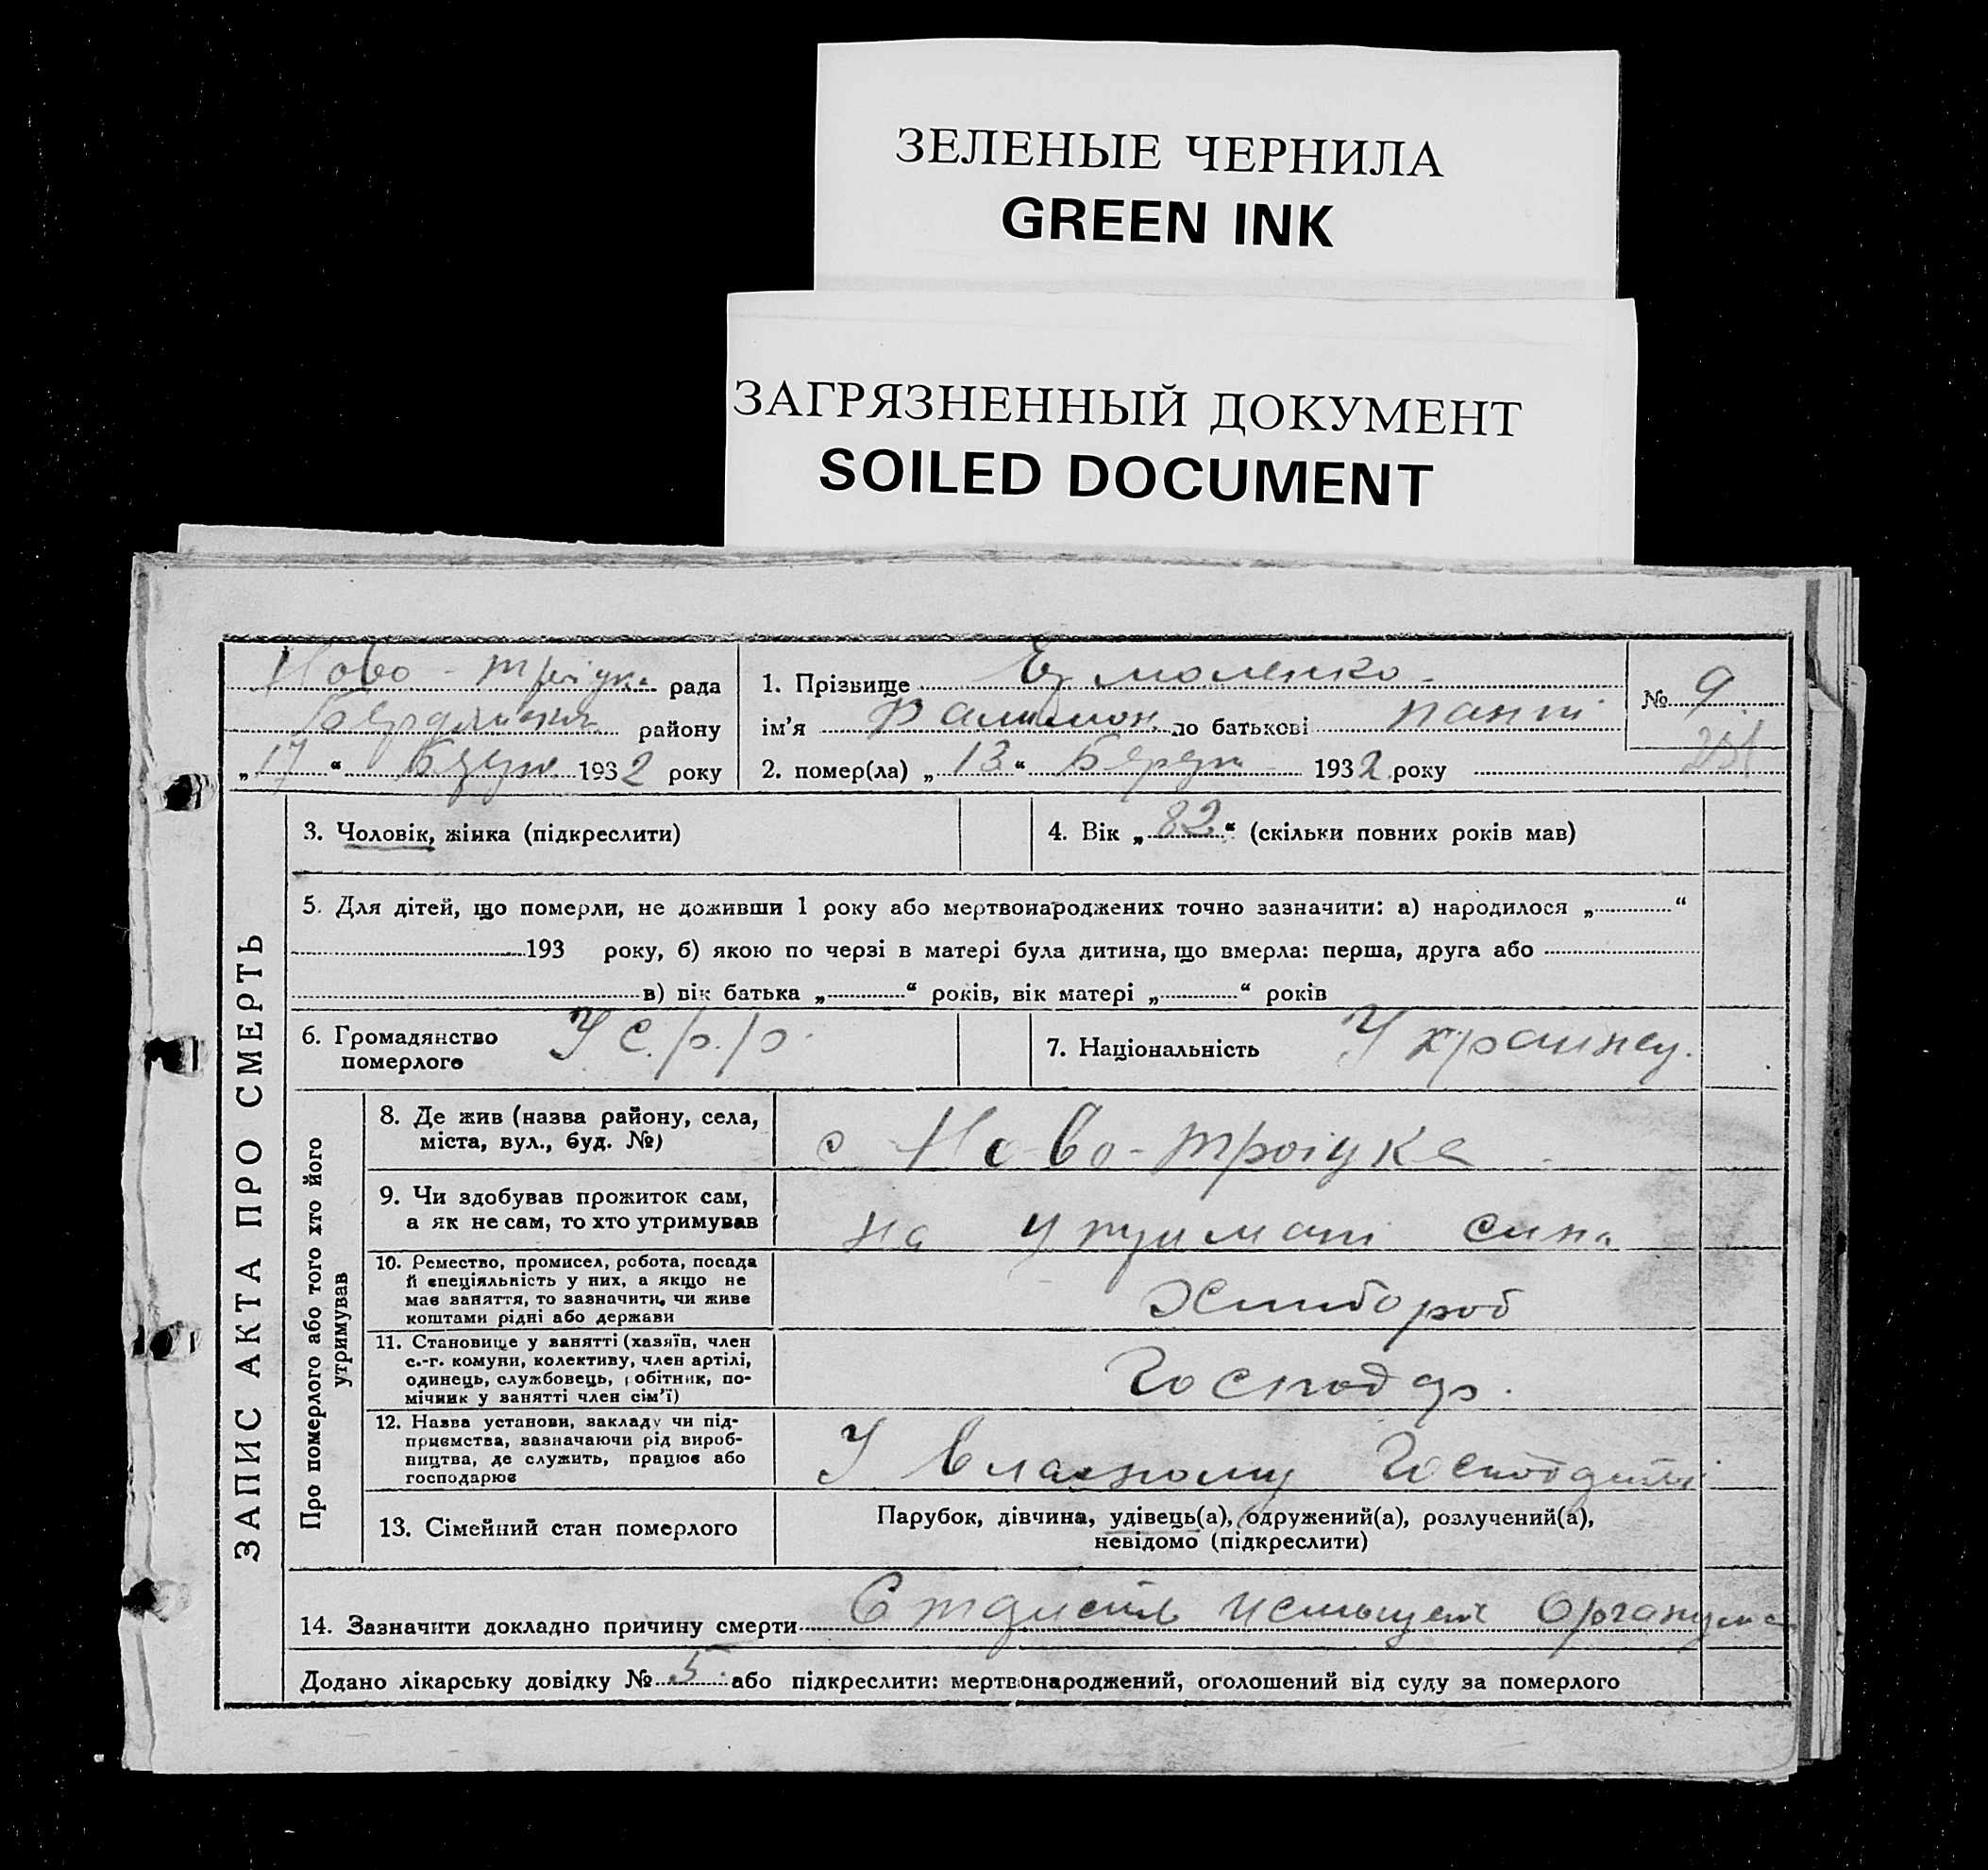 ЗЕЛЕНЫЕ ЧЕРНИЛА
GREEN INK
ЗАГРЯЗНЕННЫЙ ДОКУМЕНТ
SOILED DOCUMENT
Ново-троіцка рада
району
„17“ 1932 року
1. Прізвище моленко
ім’я по батькові
2. помер(ла) „13“ 1932 року
№ 9
ЗАПИС АКТА ПРО СМЕРТЬ
3. Чоловік, жінка (підкреслити)
4. Вік „82“ (скільки повних років мав)
5. Для дітей, що померли, не доживши 1 року або мертвонароджених точно зазначити: а) народилося „ “
193 року, б) якою по черзі в матері була дитина, що вмерла: перша, друга або
в) вік батька „ “ років, вік матері „ “ років
6. Громадянство
померлого
У с.р.р.
7. Національність Украинец.
Про померлого або того хто його
утримував
8. Де жив (назва району, села,
міста, вул., буд. №)
с Ново-троіцке
9. Чи здобував прожиток сам,
а як не сам, то хто утримував
на сина
10. Ремество, промисел, робота, посада
й спеціяльність у них, а якщо не
має заняття, то зазначити, чи живе
коштами рідні або держави
Хлибороб
11. Становище у занятті (хазяїн, член
с.-г. комуни, колективу, член артілі,
одинець, службовець, робітник, по-
мічник у занятті член сім’ї)
Господар.
12. Назва установи, закладу чи під-
приємства, зазначаючи рід вироб-
ництва, де служить, працює або
господарює
У власному
13. Сімейний стан померлого
Парубок, дівчина, удівець(а), одружений(а), розлучений(а),
невідомо (підкреслити)
14. Зазначити докладно причину смерти
Додано лікарську довідку № 5 або підкреслити: мертвонароджений, оголошений від суду за померлого